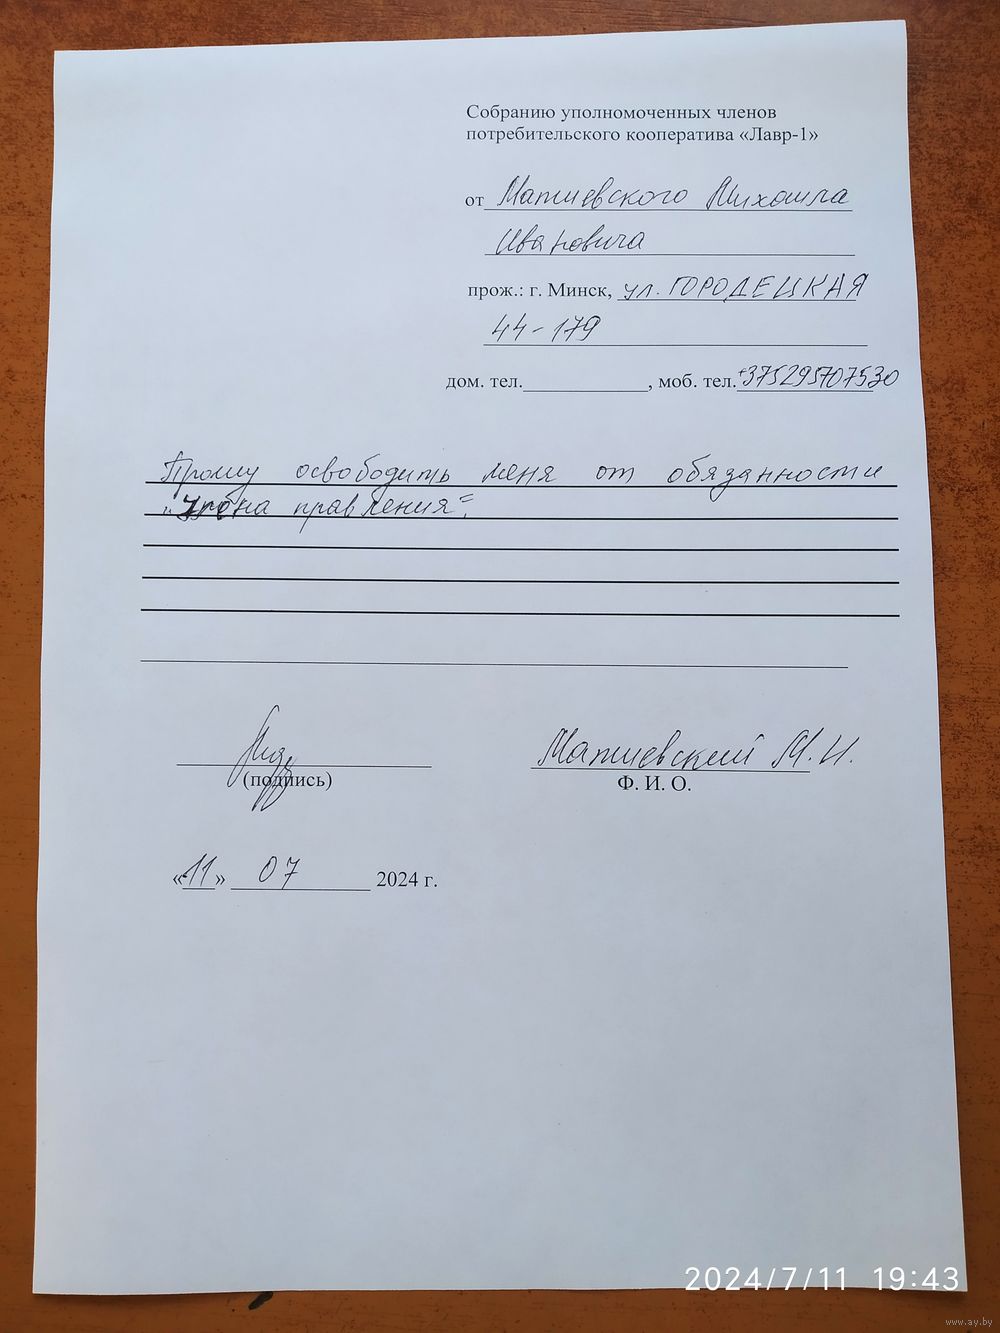 Собранию уполномоченных членов
потребительского кооператива «Лавр-1»
от Матиевского Михаила
Ивановича
прож.: г. Минск, ул. ГОРОДЕЦКАЯ
44-179
дом. тел. , моб. тел. +375295707530
Прошу освободить меня от обязанности
"члена правления".
(подпись)
Матиевский М.И.
Ф. И. О.
«11» 07 2024 г.
2024/7/11 19:43
www.ay.by